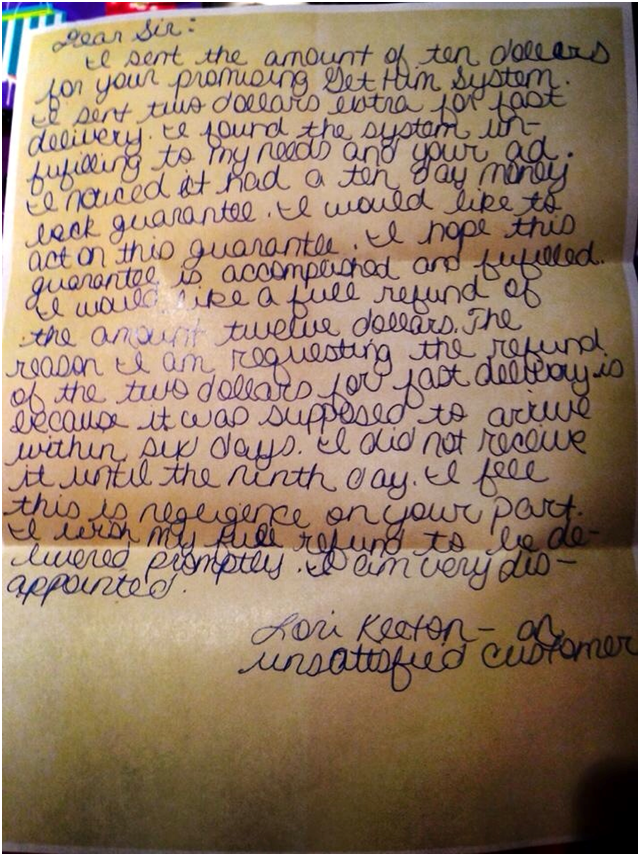 Dear Sir:
I sent the amount of ten dollars
for your promising Get Him System.
I sent two dollars extra for fast
delivery. I found the system un-
fufilling to my needs and your ad.
I noticed it had a ten day money
back guarantee. I would like to
act on this guarantee. I hope this
guarantee is accomplished and fufilled.
I would like a full refund of
the amount twelve dollars. The
reason I am requesting the refund
of the two dollars for fast delivery is
because it was supposed to arrive
within six days. I did not receive
it until the ninth day. I feel
this is negligence on your part.
I wish my full refund to be de-
livered promptly. I am very dis-
appointed.
Lori Keeton - an
unsattisfied customer